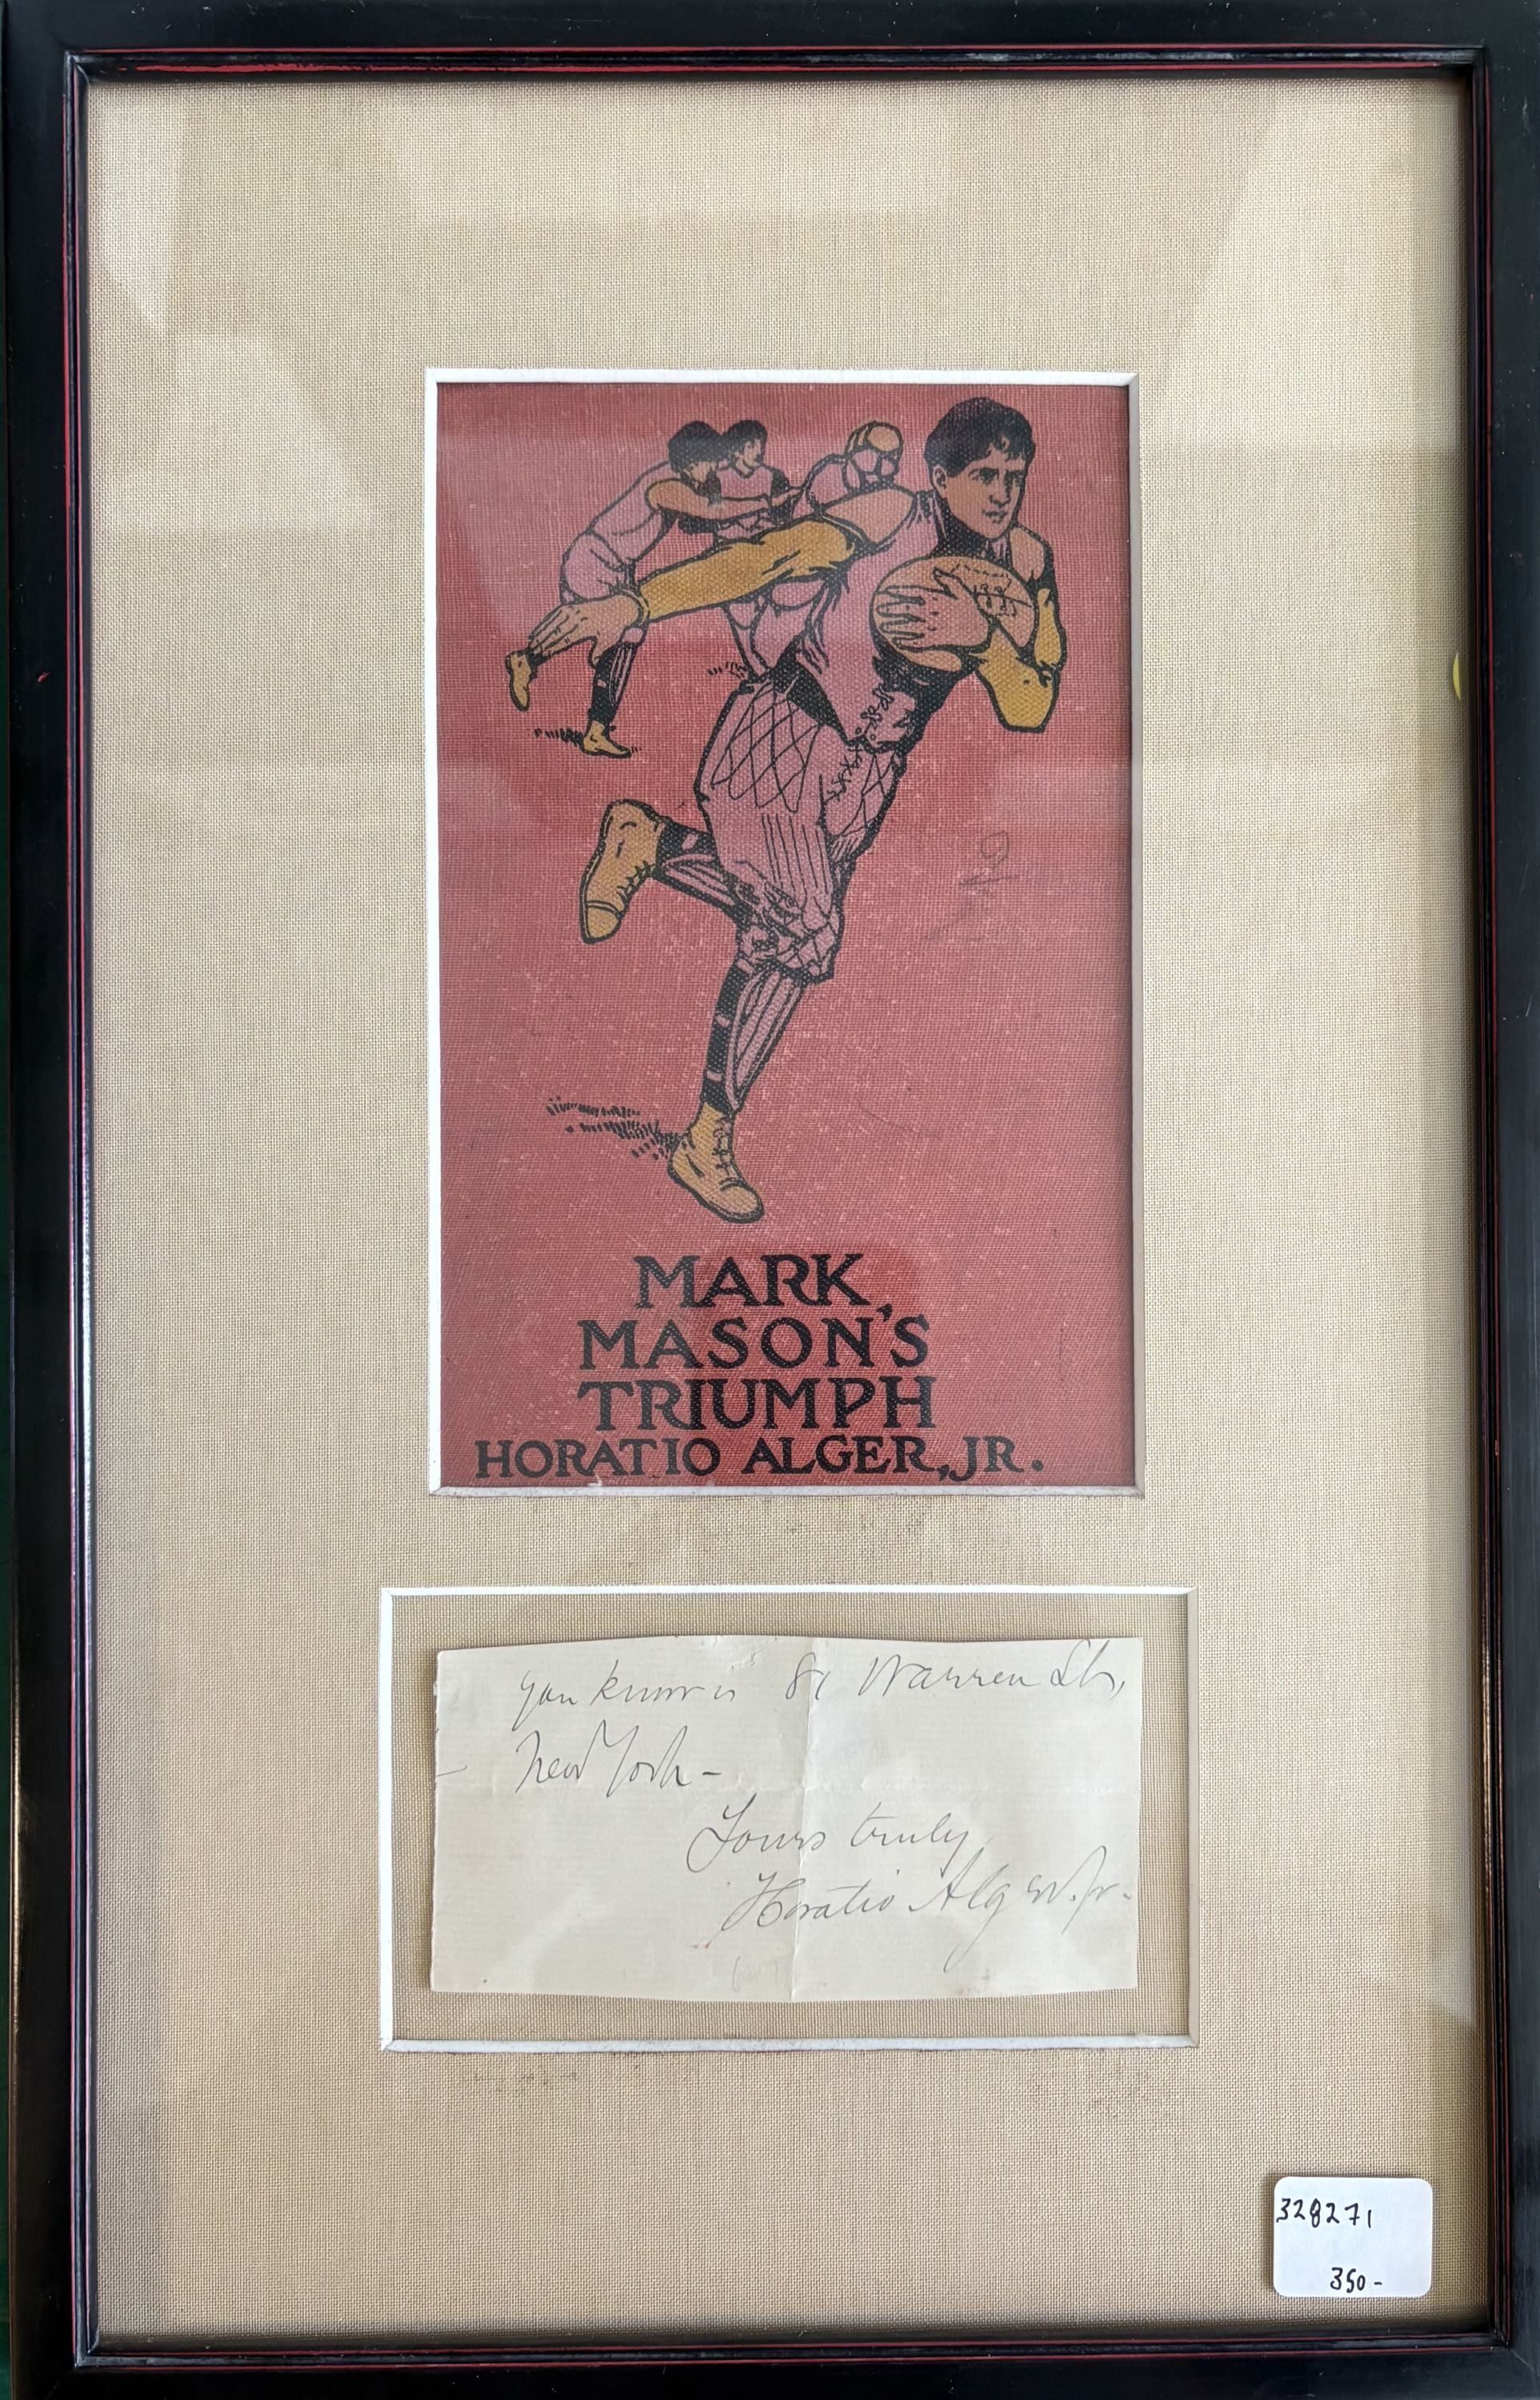 MARK
MASON'S
TRIUMPH
HORATIO ALGER, JR.
you know is 81 Warren St,
New York -
Yours truly
Horatio Alger Jr.
328271
350-